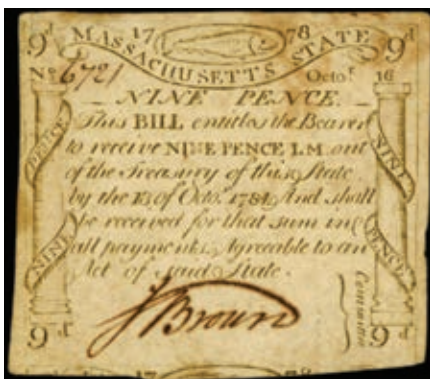 9d 17 78 9d
MASSACHUSETTS STATE
No 6721 Octor. 16
NINE PENCE.
This BILL entitles the Bearer
to receive NINE PENCE L.M. out
of the Treasury of this State
by the 18 of Octo. 1784 And shall
be received for that sum in
all payments Agreeable to an
Act of said State.
PENCE
NINE
NINE
PENCE
J Brown
Committee
9d 9d
17 78